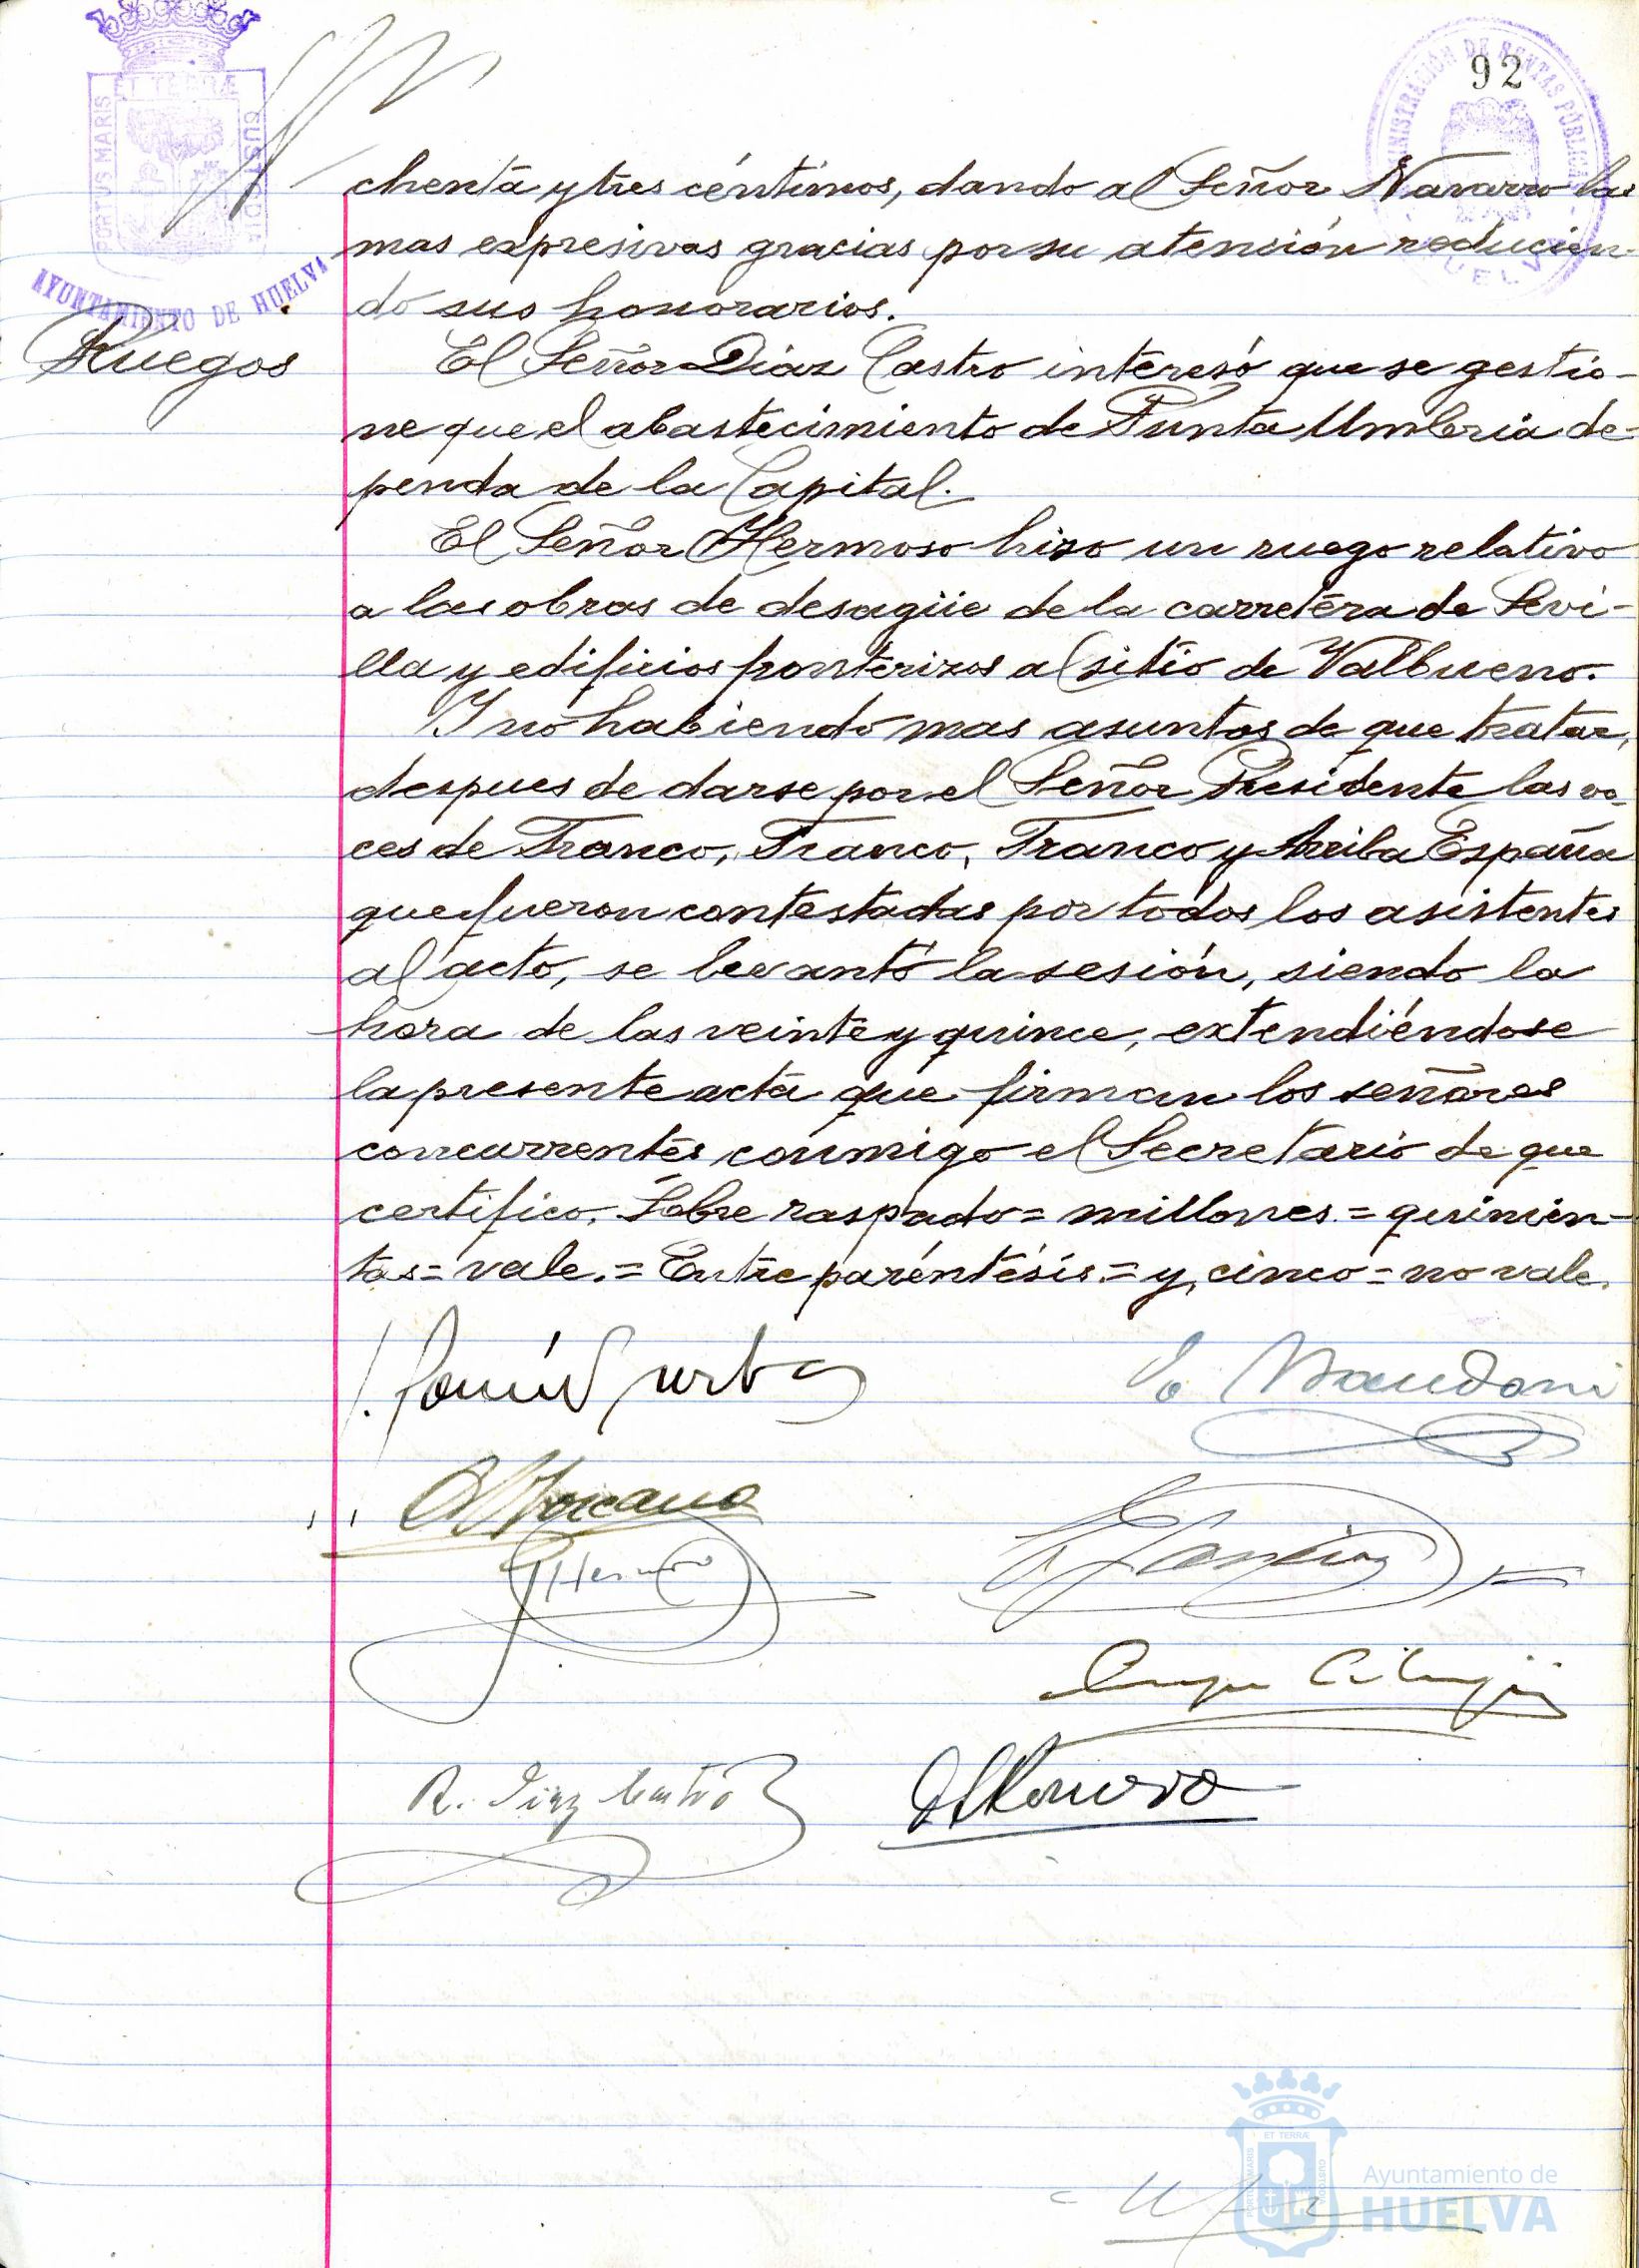 92
PORTUS MARIS ET TERRÆ CUSTODIA
AYUNTAMIENTO DE HUELVA
ADMINISTRACIÓN DE RENTAS PÚBLICAS
HUELVA
chenta y tres céntimos, dando al Señor Navarro las
mas expresivas gracias por su atención reducien-
do sus honorarios.
Ruegos
El Señor Díaz Castro interesó que se gestio-
ne que el abastecimiento de Punta Umbria de-
penda de la Capital.
El Señor Hermoso hizo un ruego relativo
a las obras de desagüe de la carretera de Sevi-
lla y edificios fronterizos al sitio de Valbueno.
Y no habiendo mas asuntos de que tratar,
despues de darse por el Señor Presidente las vo-
ces de Franco, Franco, Franco y Arriba España
que fueron contestadas por todos los asistentes
al acto, se levantó la sesión, siendo la
hora de las veinte y quince, extendiéndose
la presente acta que firman los señores
concurrentes conmigo el Secretario de que
certifico. Sobre raspado = millones = quinien-
tas = vale. = Entre paréntésis = y, cinco = no vale.
R. Díaz Castro
ET TERRÆ
PORTUS MARIS
CUSTODIA
Ayuntamiento de
HUELVA